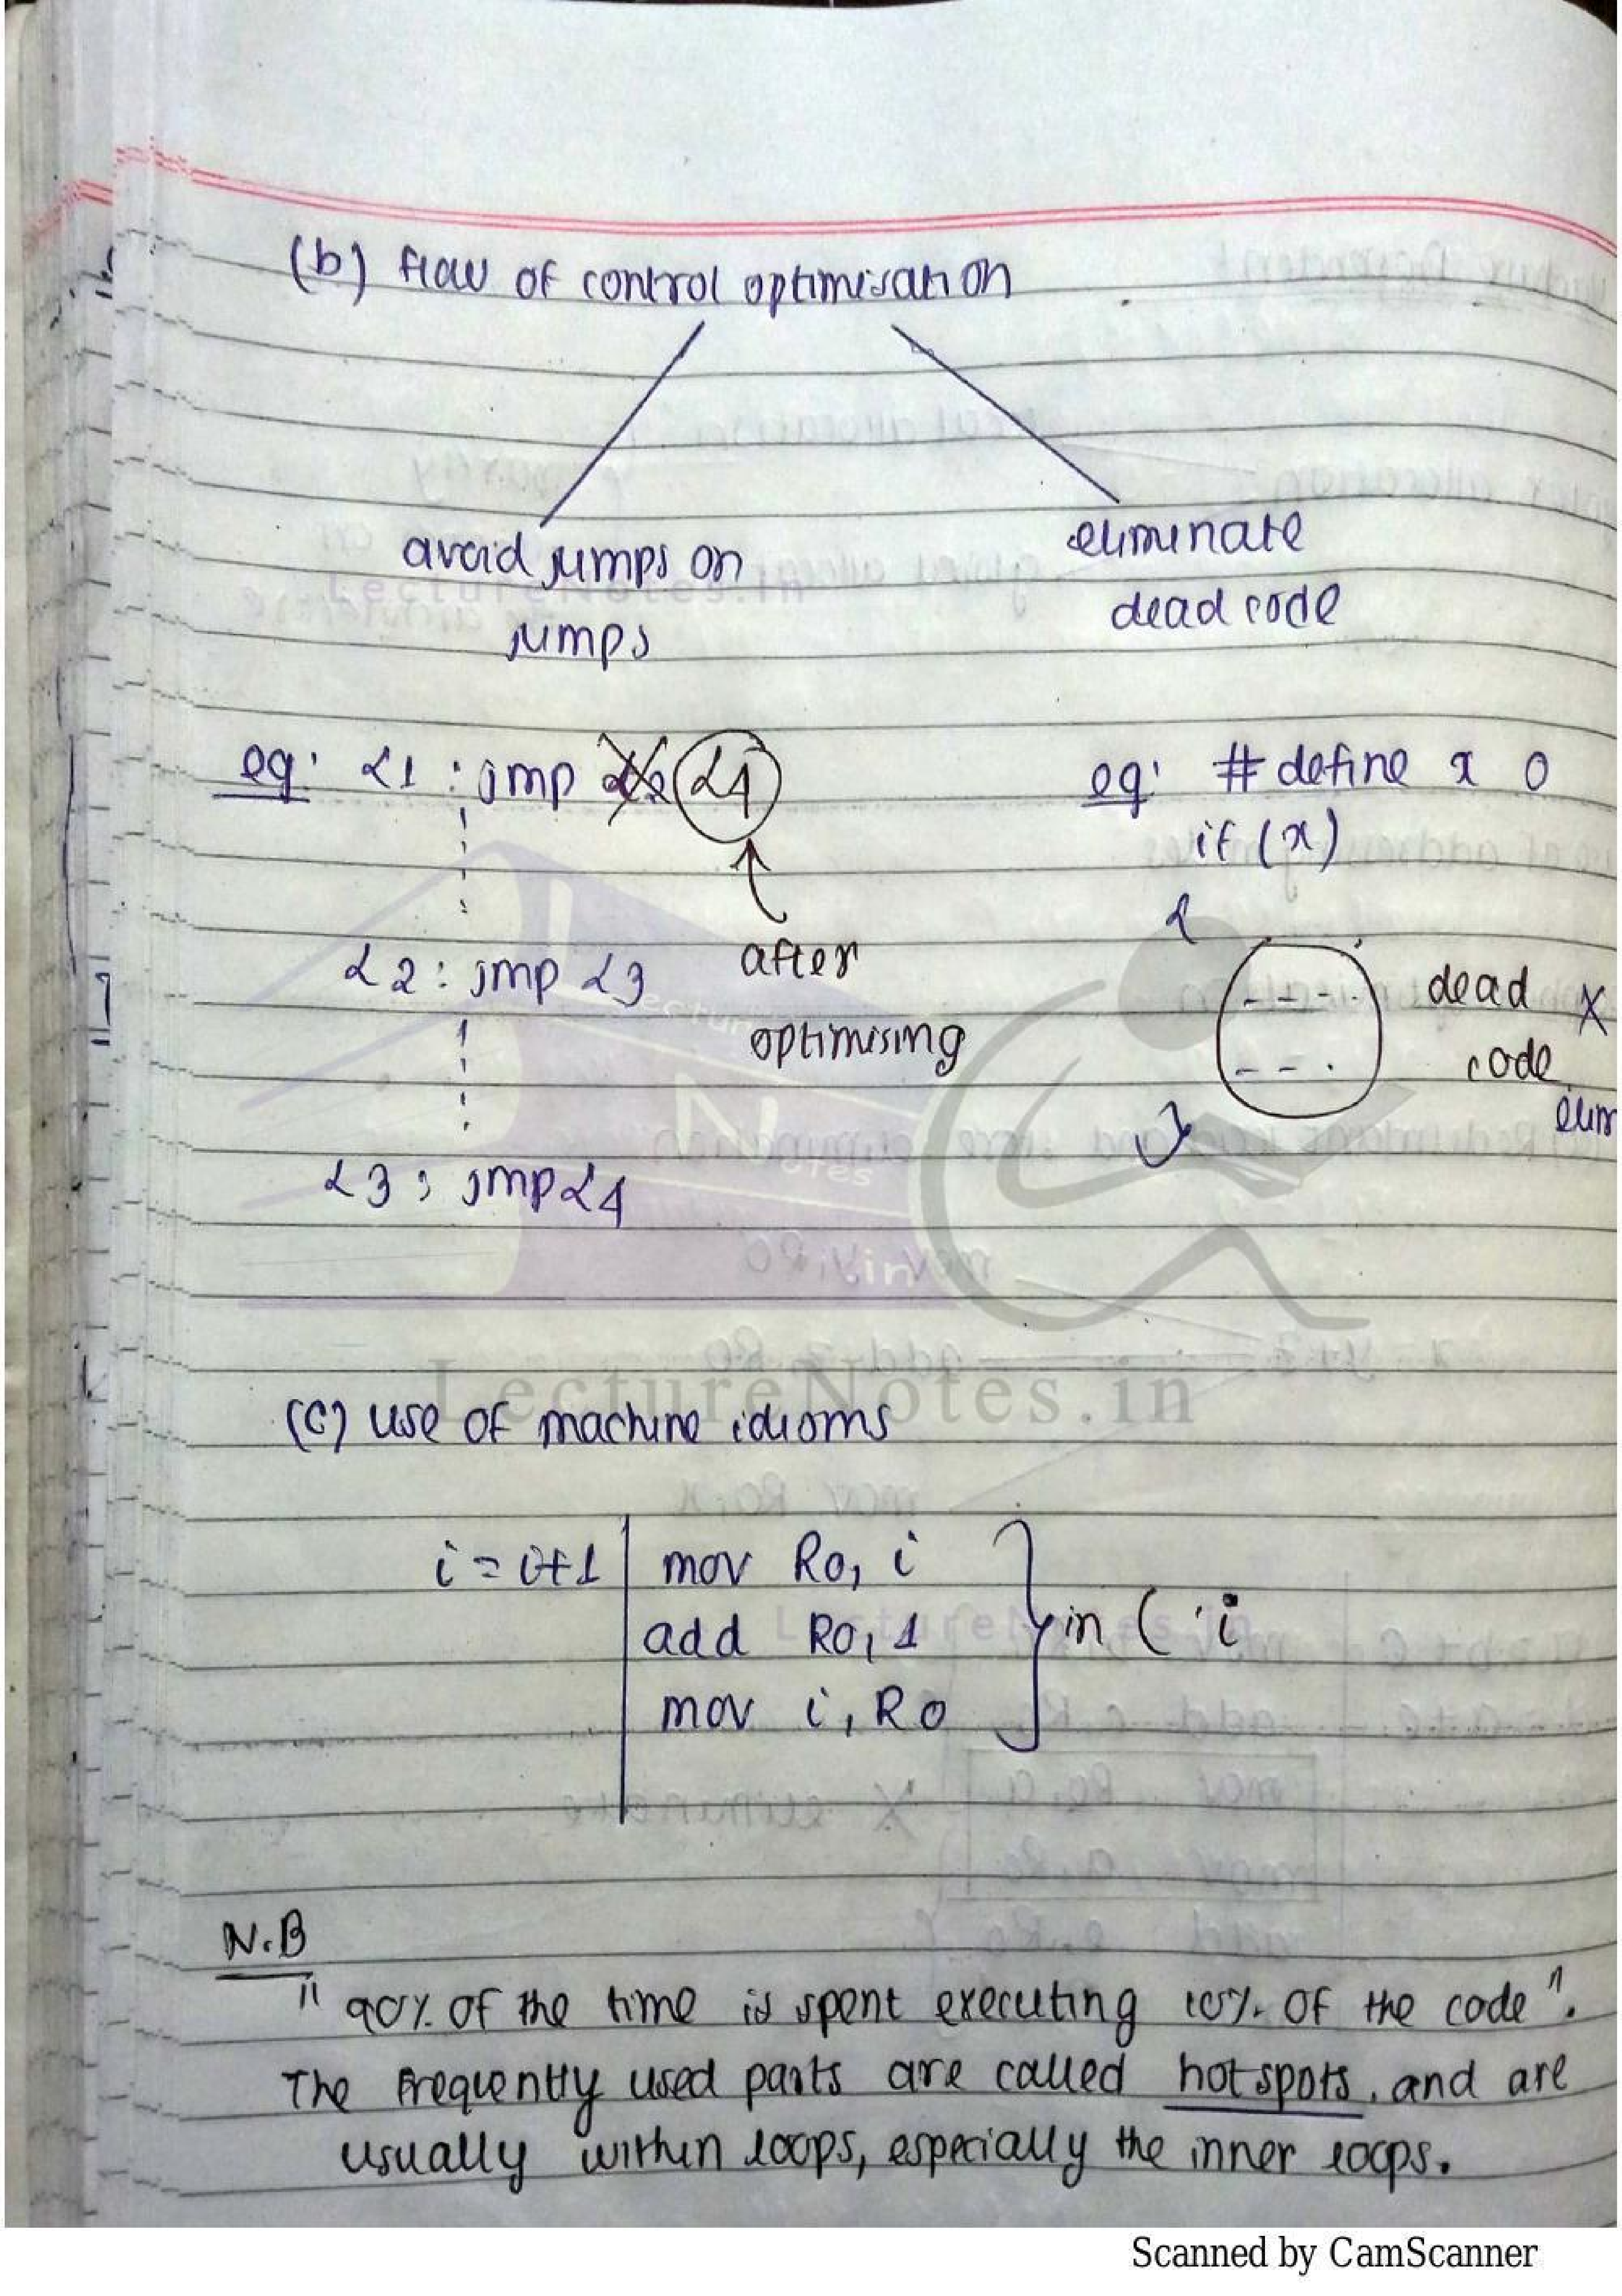 (b) flow of control optimisation
avoid jumps on
jumps
eliminate
dead code
eg: L1 : jmp L4
after
optimising
L2 : jmp L3
L3 : jmp L4
eg: # define x 0
if (x)
{
- - - -
- - -
}
dead X
code
elim
(c) use of machine idioms
i = i+1 | mov R0, i
add R0, 1
mov i, R0
} inc i
N.B
" 90% of the time is spent executing 10% of the code ".
The frequently used parts are called hotspots, and are
usually within loops, especially the inner loops.
LectureNotes.in
LectureNotes.in
LectureNotes.in
Scanned by CamScanner